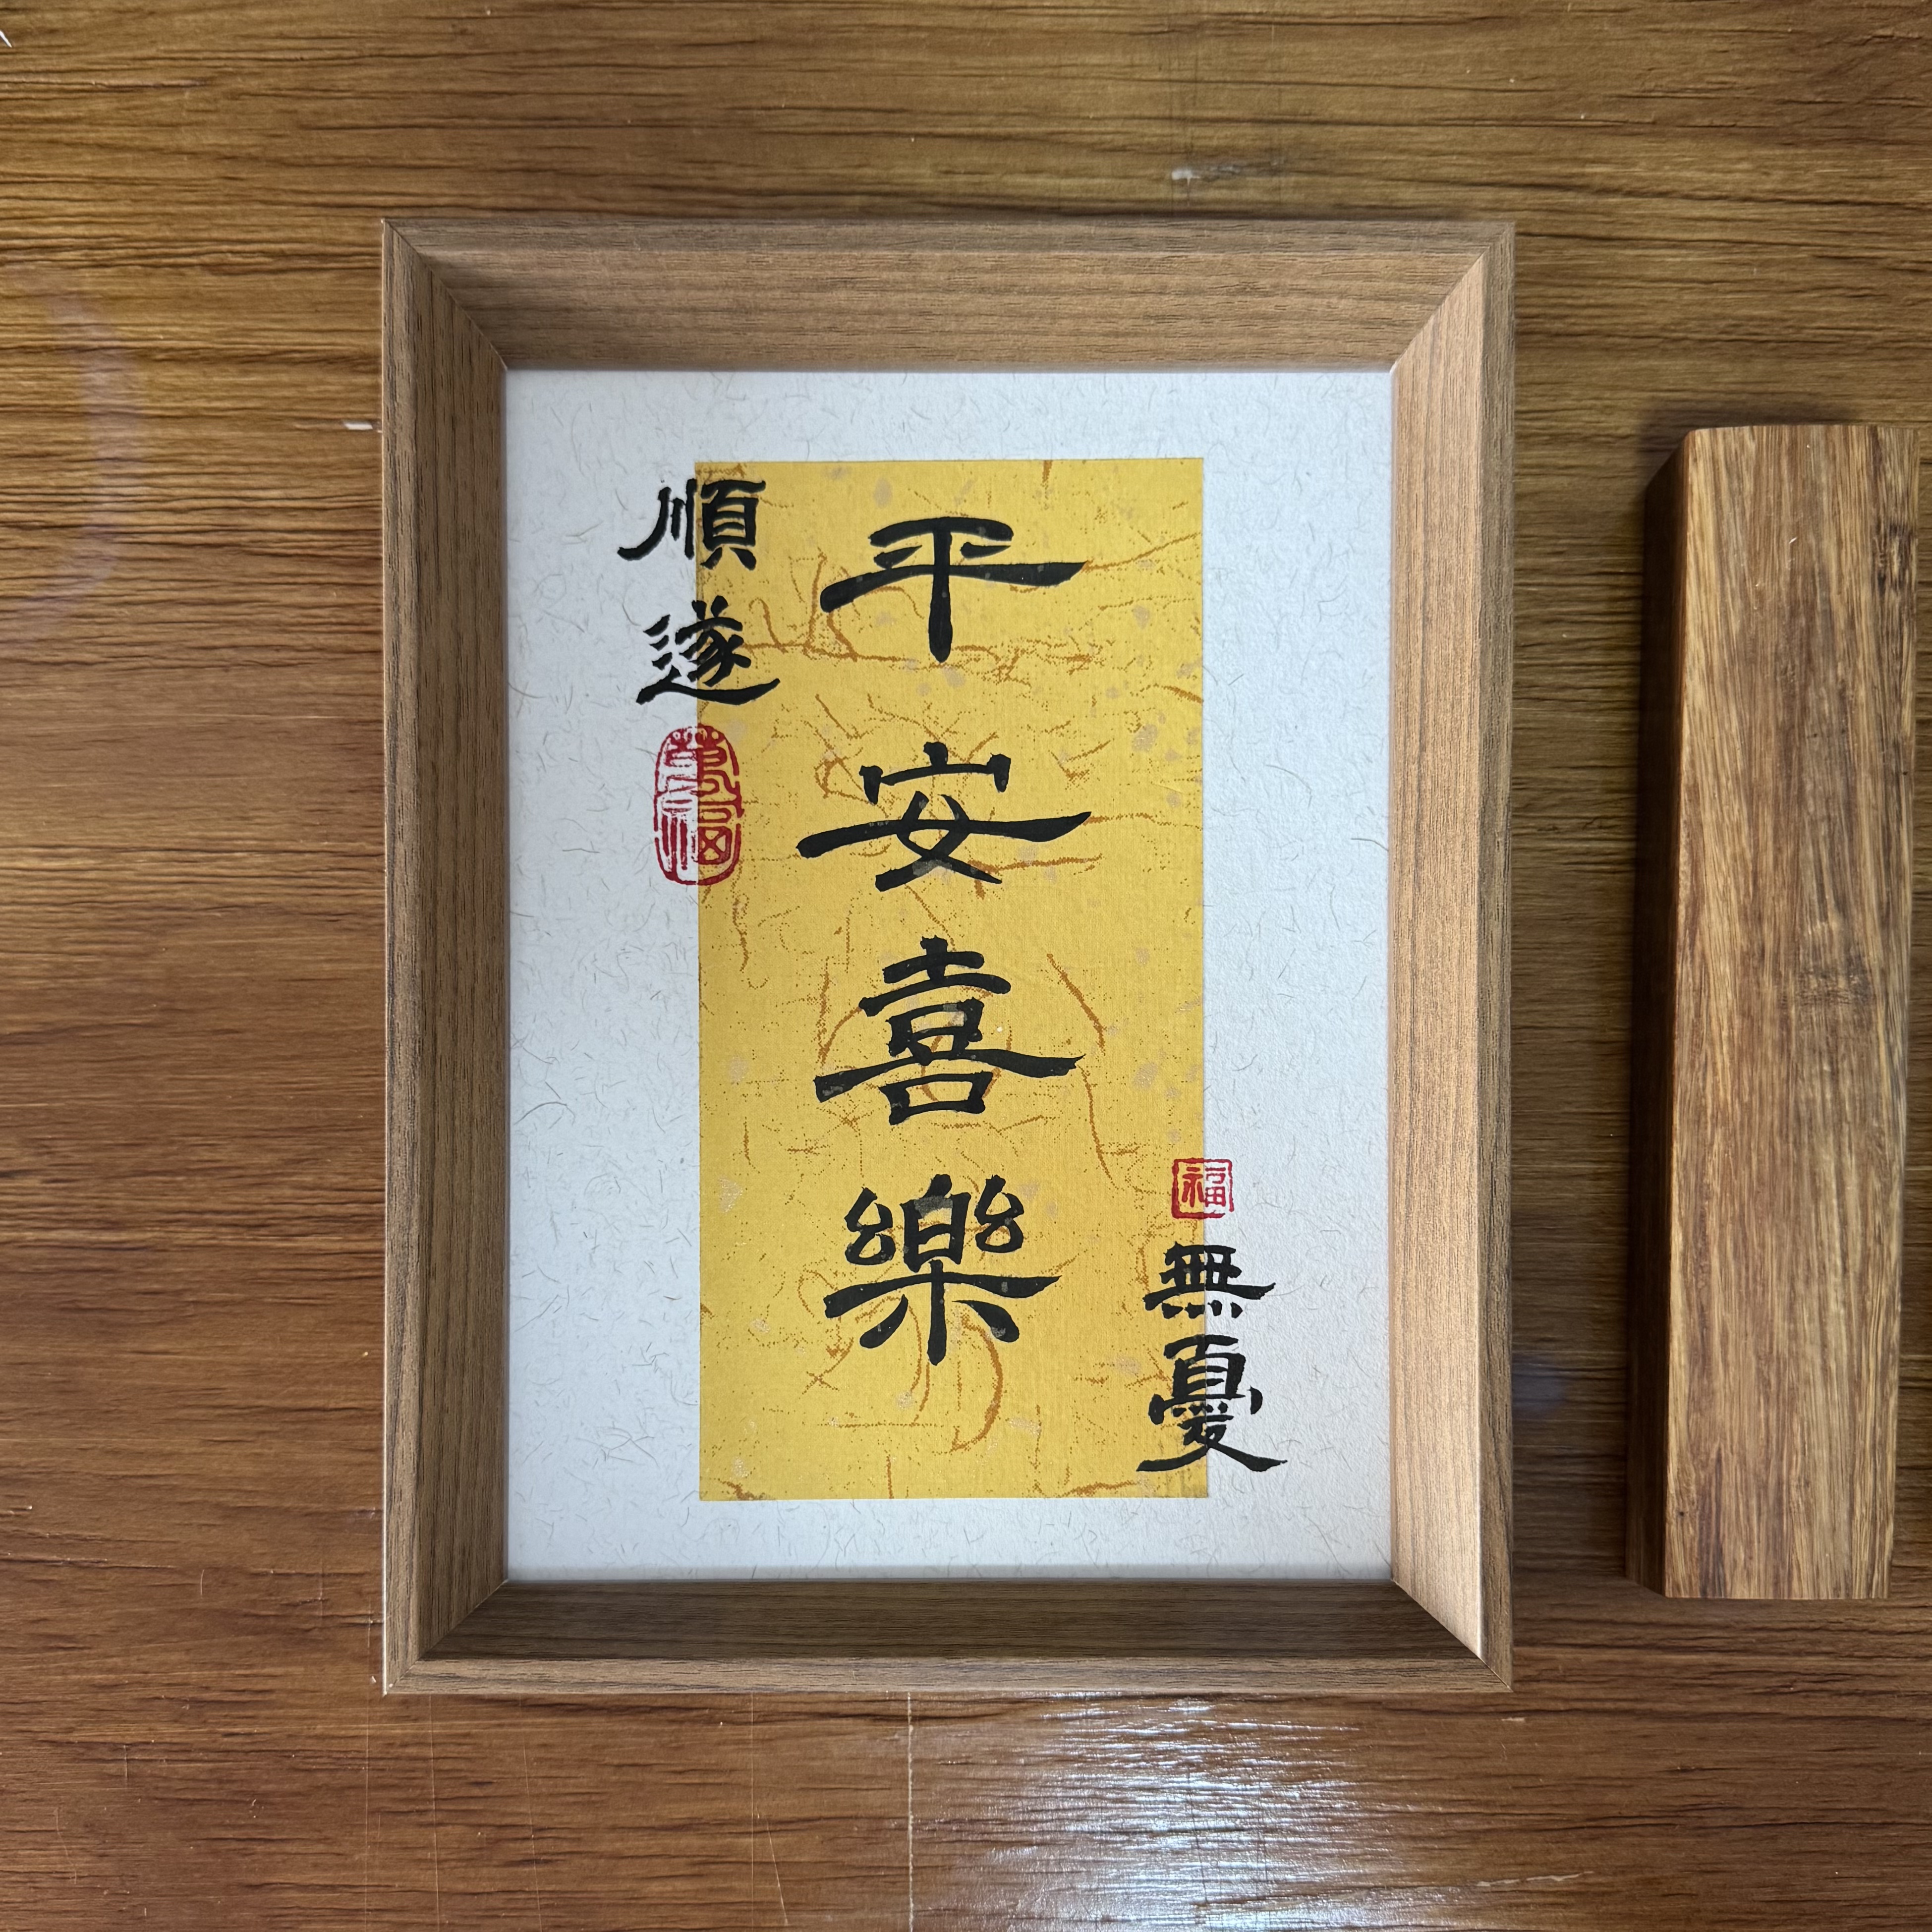 順遂
萬福
平安喜樂
福
無憂